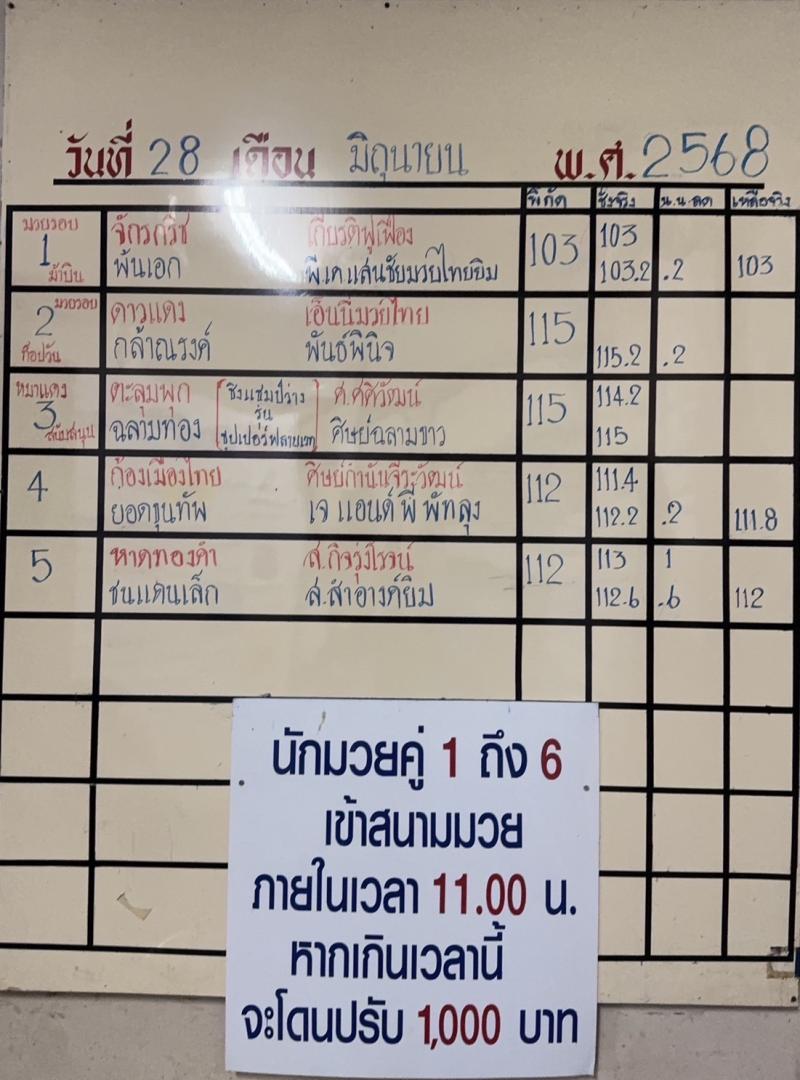 วันที่ 28 เดือน มิถุนายน พ.ศ. 2568
พิกัด ชั่งจริง น.น.ลด เหลือจริง
มวยรอบ 1 ม้าบิน
จักรกริช เกียรติฟูเฟื่อง 103 103
พันเอก พี.เค.แสนชัยมวยไทยยิม 103.2 .2 103
มวยรอบ 2 ท็อปวัน
ดาวแดง เอ็นนี่มวยไทย 115
กล้าณรงค์ พันธ์พินิจ 115.2 .2
หมาแดง 3 สนับสนุน
ตะลุมพุก ศ.ศศิวัฒน์ 115 114.2
ฉลามทอง ศิษย์ฉลามขาว 115
ชิงแชมป์ว่าง
รุ่น
ซุปเปอร์ฟลายเวท
4 ก้องเมืองไทย ศิษย์กำนันจีระวัฒน์ 112 111.4
ยอดขุนทัพ เจ แอนด์ พี พัทลุง 112.2 .2 111.8
5 หาดทองคำ ส.กิจรุ่งโรจน์ 112 113 1
ชนแดนเล็ก ส.สำอางค์ยิม 112.6 .6 112
นักมวยคู่ 1 ถึง 6
เข้าสนามมวย
ภายในเวลา 11.00 น.
หากเกินเวลานี้
จะโดนปรับ 1,000 บาท